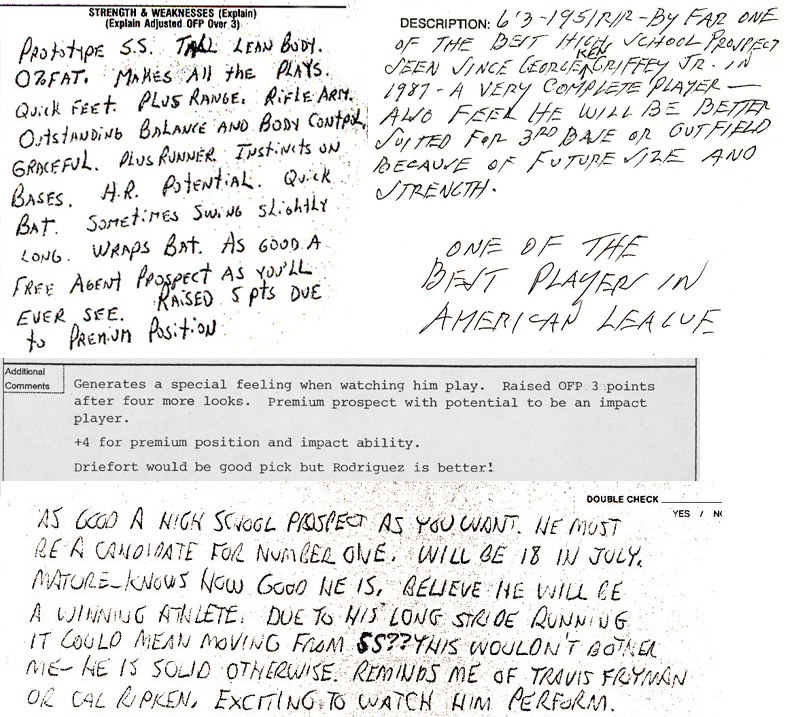 STRENGTH & WEAKNESSES (Explain)
(Explain Adjusted OFP Over 3)
PROTOTYPE S.S. TALL LEAN BODY.
0%FAT. MAKES ALL the PLAYS.
QUICK FEET. PLUS RANGE. RIFLE ARM.
OUTSTANDING BALANCE AND BODY CONTROL
GRACEFUL. PLUS RUNNER. INSTINCTS ON
BASES. H.R. POTENTIAL. QUICK
BAT. SOMETIMES SWING SLIGHTLY
LONG. WRAPS BAT. AS GOOD A
FREE AGENT PROSPECT AS YOU'LL
EVER SEE. RAISED 5 PTS DUE
to PREMIUM POSITION
DESCRIPTION: 6'3-195 R/R - BY FAR ONE
OF THE BEST HIGH SCHOOL PROSPECT
SEEN SINCE GEORGE KEN GRIFFEY JR. IN
1987 - A VERY COMPLETE PLAYER -
ALSO FEEL HE WILL BE BETTER
SUITED FOR 3RD BASE OR OUTFIELD
BECAUSE OF FUTURE SIZE AND
STRENGTH.
ONE OF THE
BEST PLAYERS IN
AMERICAN LEAGUE
Additional
Comments
Generates a special feeling when watching him play. Raised OFP 3 points
after four more looks. Premium prospect with potential to be an impact
player.
+4 for premium position and impact ability.
Driefort would be good pick but Rodriguez is better!
DOUBLE CHECK
YES / NO
AS GOOD A HIGH SCHOOL PROSPECT AS YOU WANT. HE MUST
BE A CANDIDATE FOR NUMBER ONE. WILL BE 18 IN JULY.
MATURE-KNOWS HOW GOOD HE IS, BELIEVE HE WILL BE
A WINNING ATHLETE. DUE TO HIS LONG STRIDE RUNNING
IT COULD MEAN MOVING FROM SS?? THIS WOULDN'T BOTHER
ME- HE IS SOLID OTHERWISE. REMINDS ME OF TRAVIS FRYMAN
OR CAL RIPKEN. EXCITING TO WATCH HIM PERFORM.